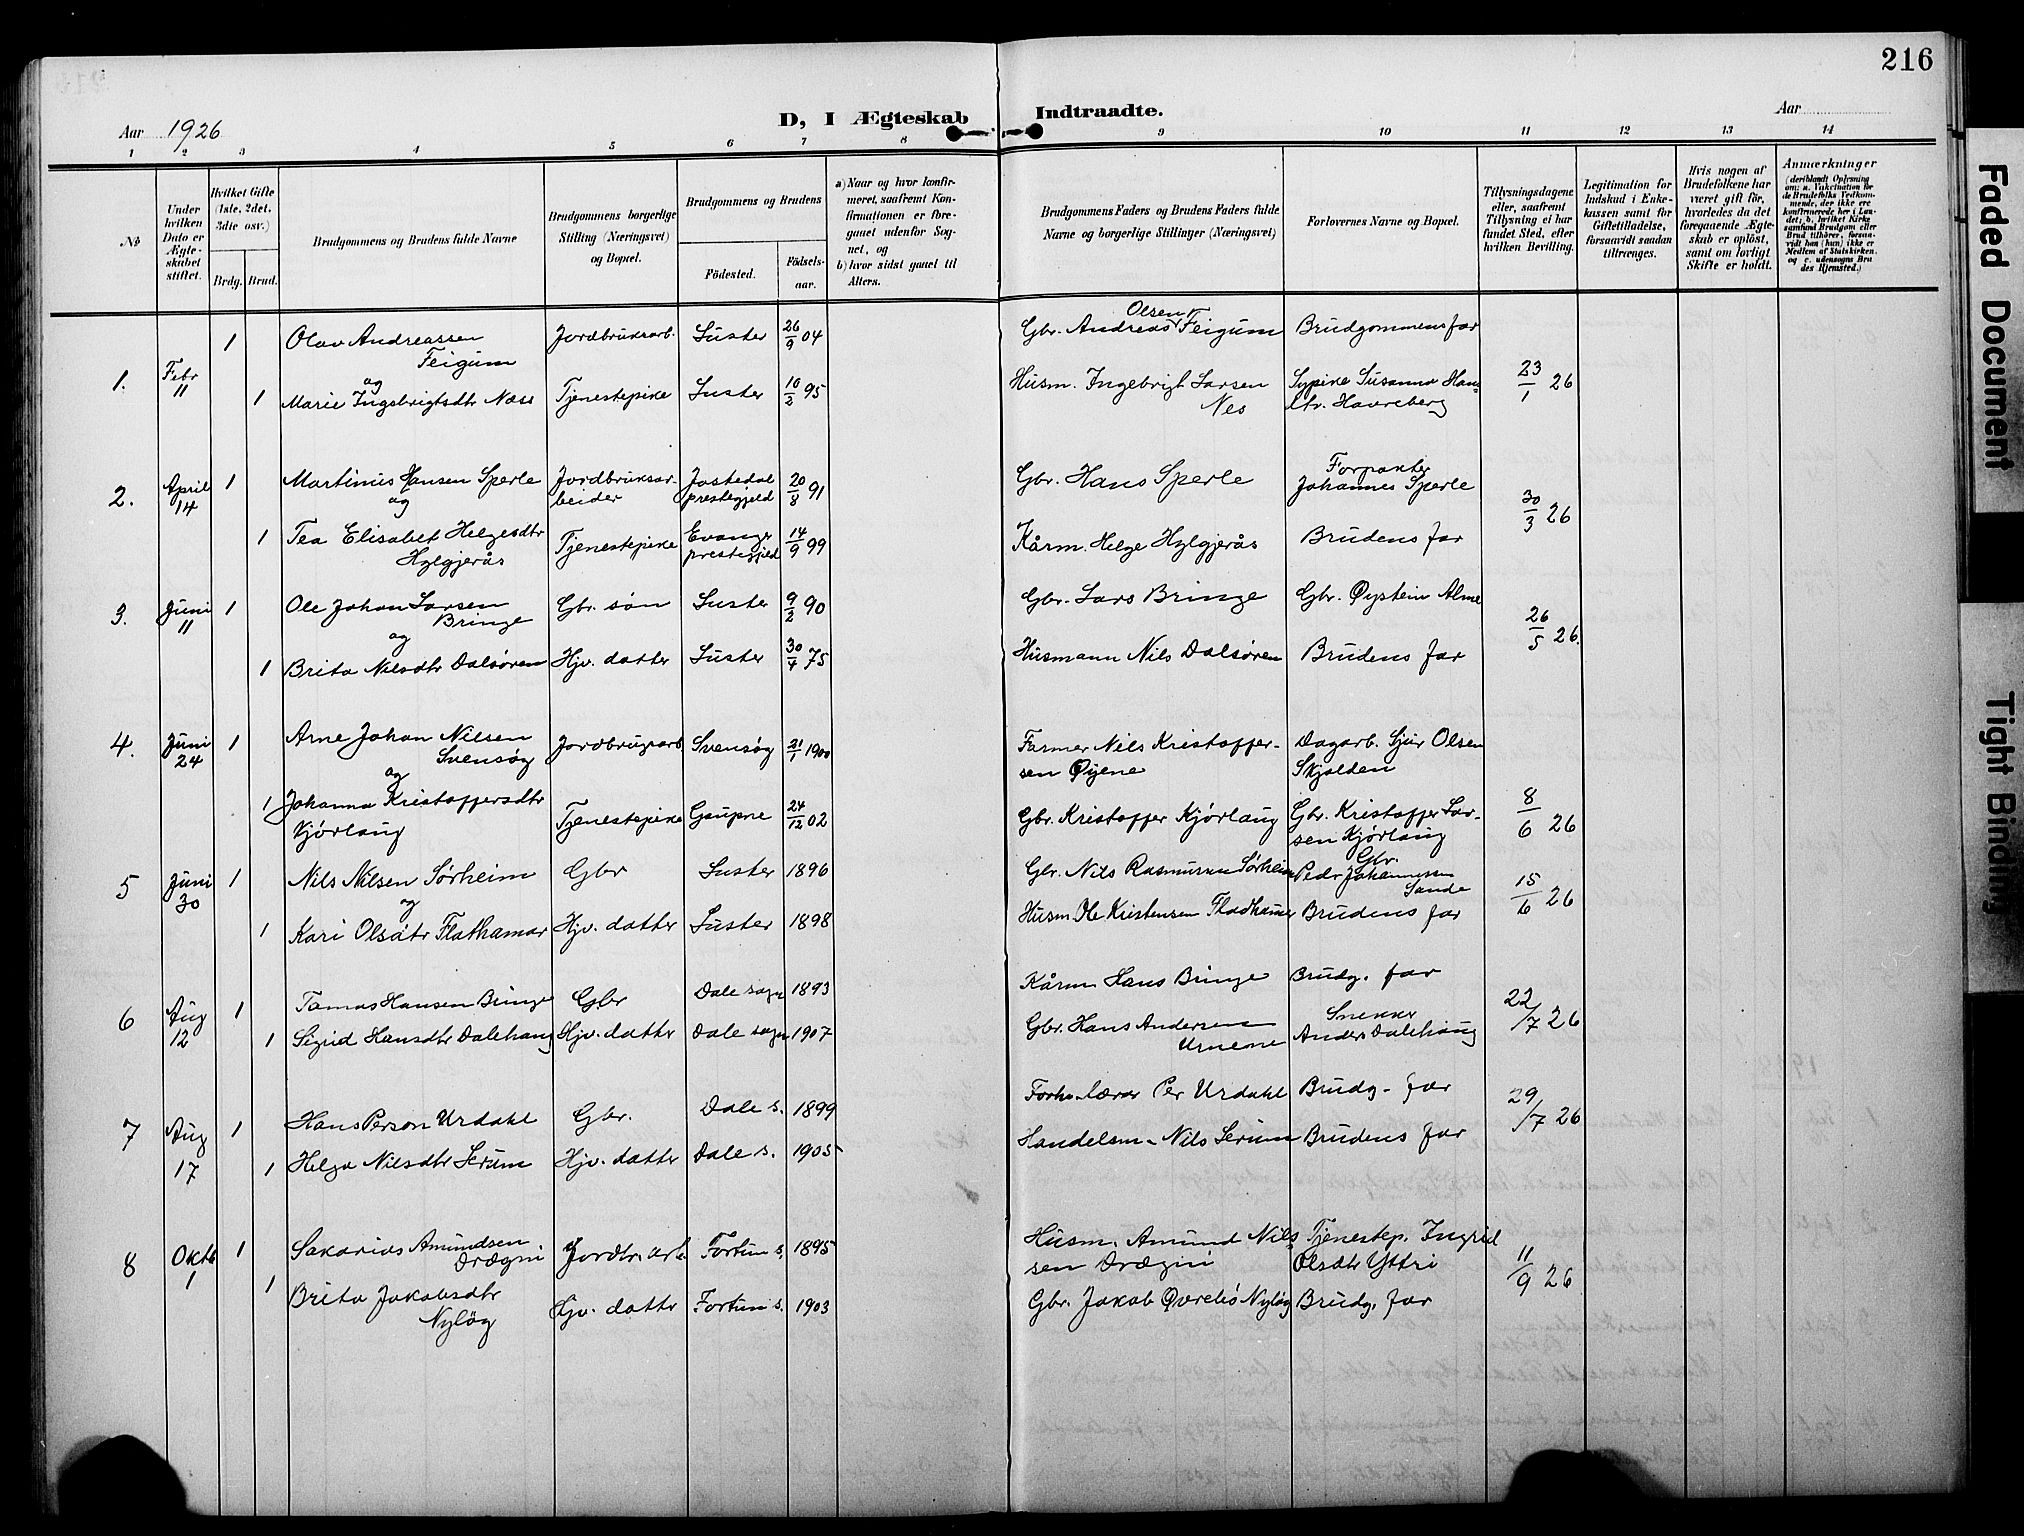 216
D, I Ægteskab Indtraadte.
Aar 1926
Aar
1 2 3 4 5 6 7 8 9 10 11 12 13 14
No
Under hvilken Dato er Ægteskabet stiftet.
Hvilket Gifte (1ste, 2det, 3die osv.)
Brdg. Brud.
Brudgommens og Brudens fulde Navne
Brudgommens borgerlige Stilling (Næringsvei) og Bopæl.
Brudgommens og Brudens
Födested. Födselsaar.
a) Naar og hvor konfirmeret, saafremt Konfirmationen er foregaaet udenfor Sognet, og
b) hvor sidst gaaet til Alters.
Brudgommens Faders og Brudens Faders fulde Navne og borgerlige Stillinger (Næringsvei)
Forlovernes Navne og Bopæl.
Tillysningsdagene eller, saafremt Tillysning ei har fundet Sted, efter hvilken Bevilling.
Legitimation for Indskud i Enkekassen samt for Giftetilladelse, forsaavidt saadan tiltrænges.
Hvis nogen af Brudefolkene har været gift før, hvorledes da det foregaaende Ægteskab er oplöst, samt om lovligt Skifte er holdt.
Anmærkninger
(deriblandt Oplysning om: a. Vakcination for de Brudefolks Vedkommende, der ikke ere konfirmerede her i Landet; b. hvilket Kirkesamfund Brudgom eller Brud tilhörer, forsaavidt han (hun) ikke er Medlem af Statskirken, og c. udensogns Brudes Hjemsted.)
1. Febr 11 1 Olav Andreassen Feigum Jordbruksarb. Luster 26/9 04 Gbr. Andreas Olsen Feigum Brudgommens far
og
1 Marie Ingebrigtsdtr Næss Tjenestepike Luster 10/2 95 Husm. Ingebrigt Larsen Nes Sypike Susanna Hansdtr. Havreberg 23/1 26
2. April 14 1 Martinus Hansen Sperle Jordbruksarbeider Jostedal prestegjeld 20/8 91 Gbr. Hans Sperle Forpakter Johannes Sperle
og
1 Tea Elisabet Helgesdtr Hylgjerås Tjenestepike Evanger prestegjeld 14/9 99 Kårm. Helge Hylgjerås Brudens far 30/3 26
3. Juni 11 1 Ole Johan Larsen Bringe Gbr. søn Luster 9/2 90 Gbr. Lars Bringe Gbr. Øystein Alme
og
1 Brita Nilsdtr Dalsøren Hjv. datter Luster 30/4 75 Husmann Nils Dalsøren Brudens far 26/5 26.
4. Juni 24 1 Arne Johan Nilsen Svensøy Jordbrugsarb Svensøy 21/1 1900 Farmer Nils Kristoffersen Øyene Dagarb. Sjur Olsen Skjolden
og
1 Johanna Kristoffersdtr Kjørlaug Tjenestepike Gaupne 24/12 02 Gbr. Kristoffer Kjørlaug Gbr. Kristoffer Larsen Kjørlaug 8/6 26
5 Juni 30 1 Nils Nilsen Sørheim Gbr Luster 1896 Gbr. Nils Rasmussen Sørheim Gbr. Peder Johannessen Sande
og
1 Kari Olsdtr Flathamar Hjv. datter Luster 1898 Husm. Ole Kristensen Fladhamar Brudens far 15/6 26
6 Aug 12 1 Tomas Hansen Bringe Gbr Dale sogn 1893 Kårm Hans Bringe Brudg. far
1 Sigrid Hansdtr Dalehaug Hjv. datter Dale sogn 1907 Gbr. Hans Andersen Urnene Snekker Anders Dalehaug 22/7 26
7 Aug 17 1 Hans Person Urdahl Gbr. Dale s. 1899 Forh. lærer Per Urdahl Brudg. far
1 Helga Nilsdtr Serum Hjv. datter Dale s. 1905 Handelsm. Nils Serum Brudens far 29/7 26
8 Oktb 1 1 Sakarias Amundsen Drægni Jordbr. arb Fortun s. 1895 Husm. Amund Nilssen Drægni Tjenestep. Ingrid Olsdtr Yttri
1 Brita Jakobsdtr Nyløy Hjv. datter Fortun s. 1903 Gbr. Jakob Øvrebø Nyløy Brudg. far 11/9 26
Faded Document
Tight Binding